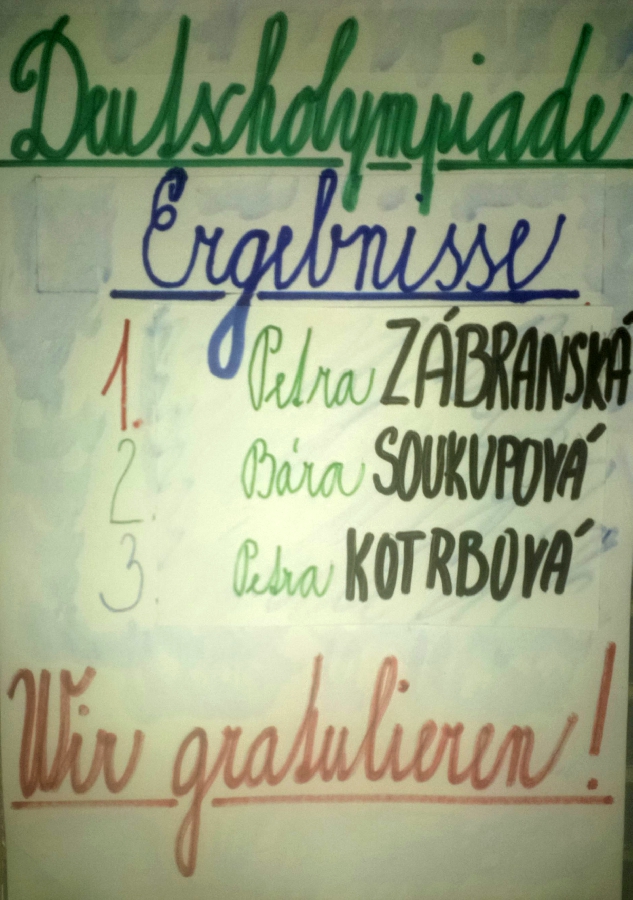 Deutscholympiade
Ergebnisse
1. Petra ZÁBRANSKÁ
2. Bára SOUKUPOVÁ
3. Petra KOTRBOVÁ
Wir gratulieren!